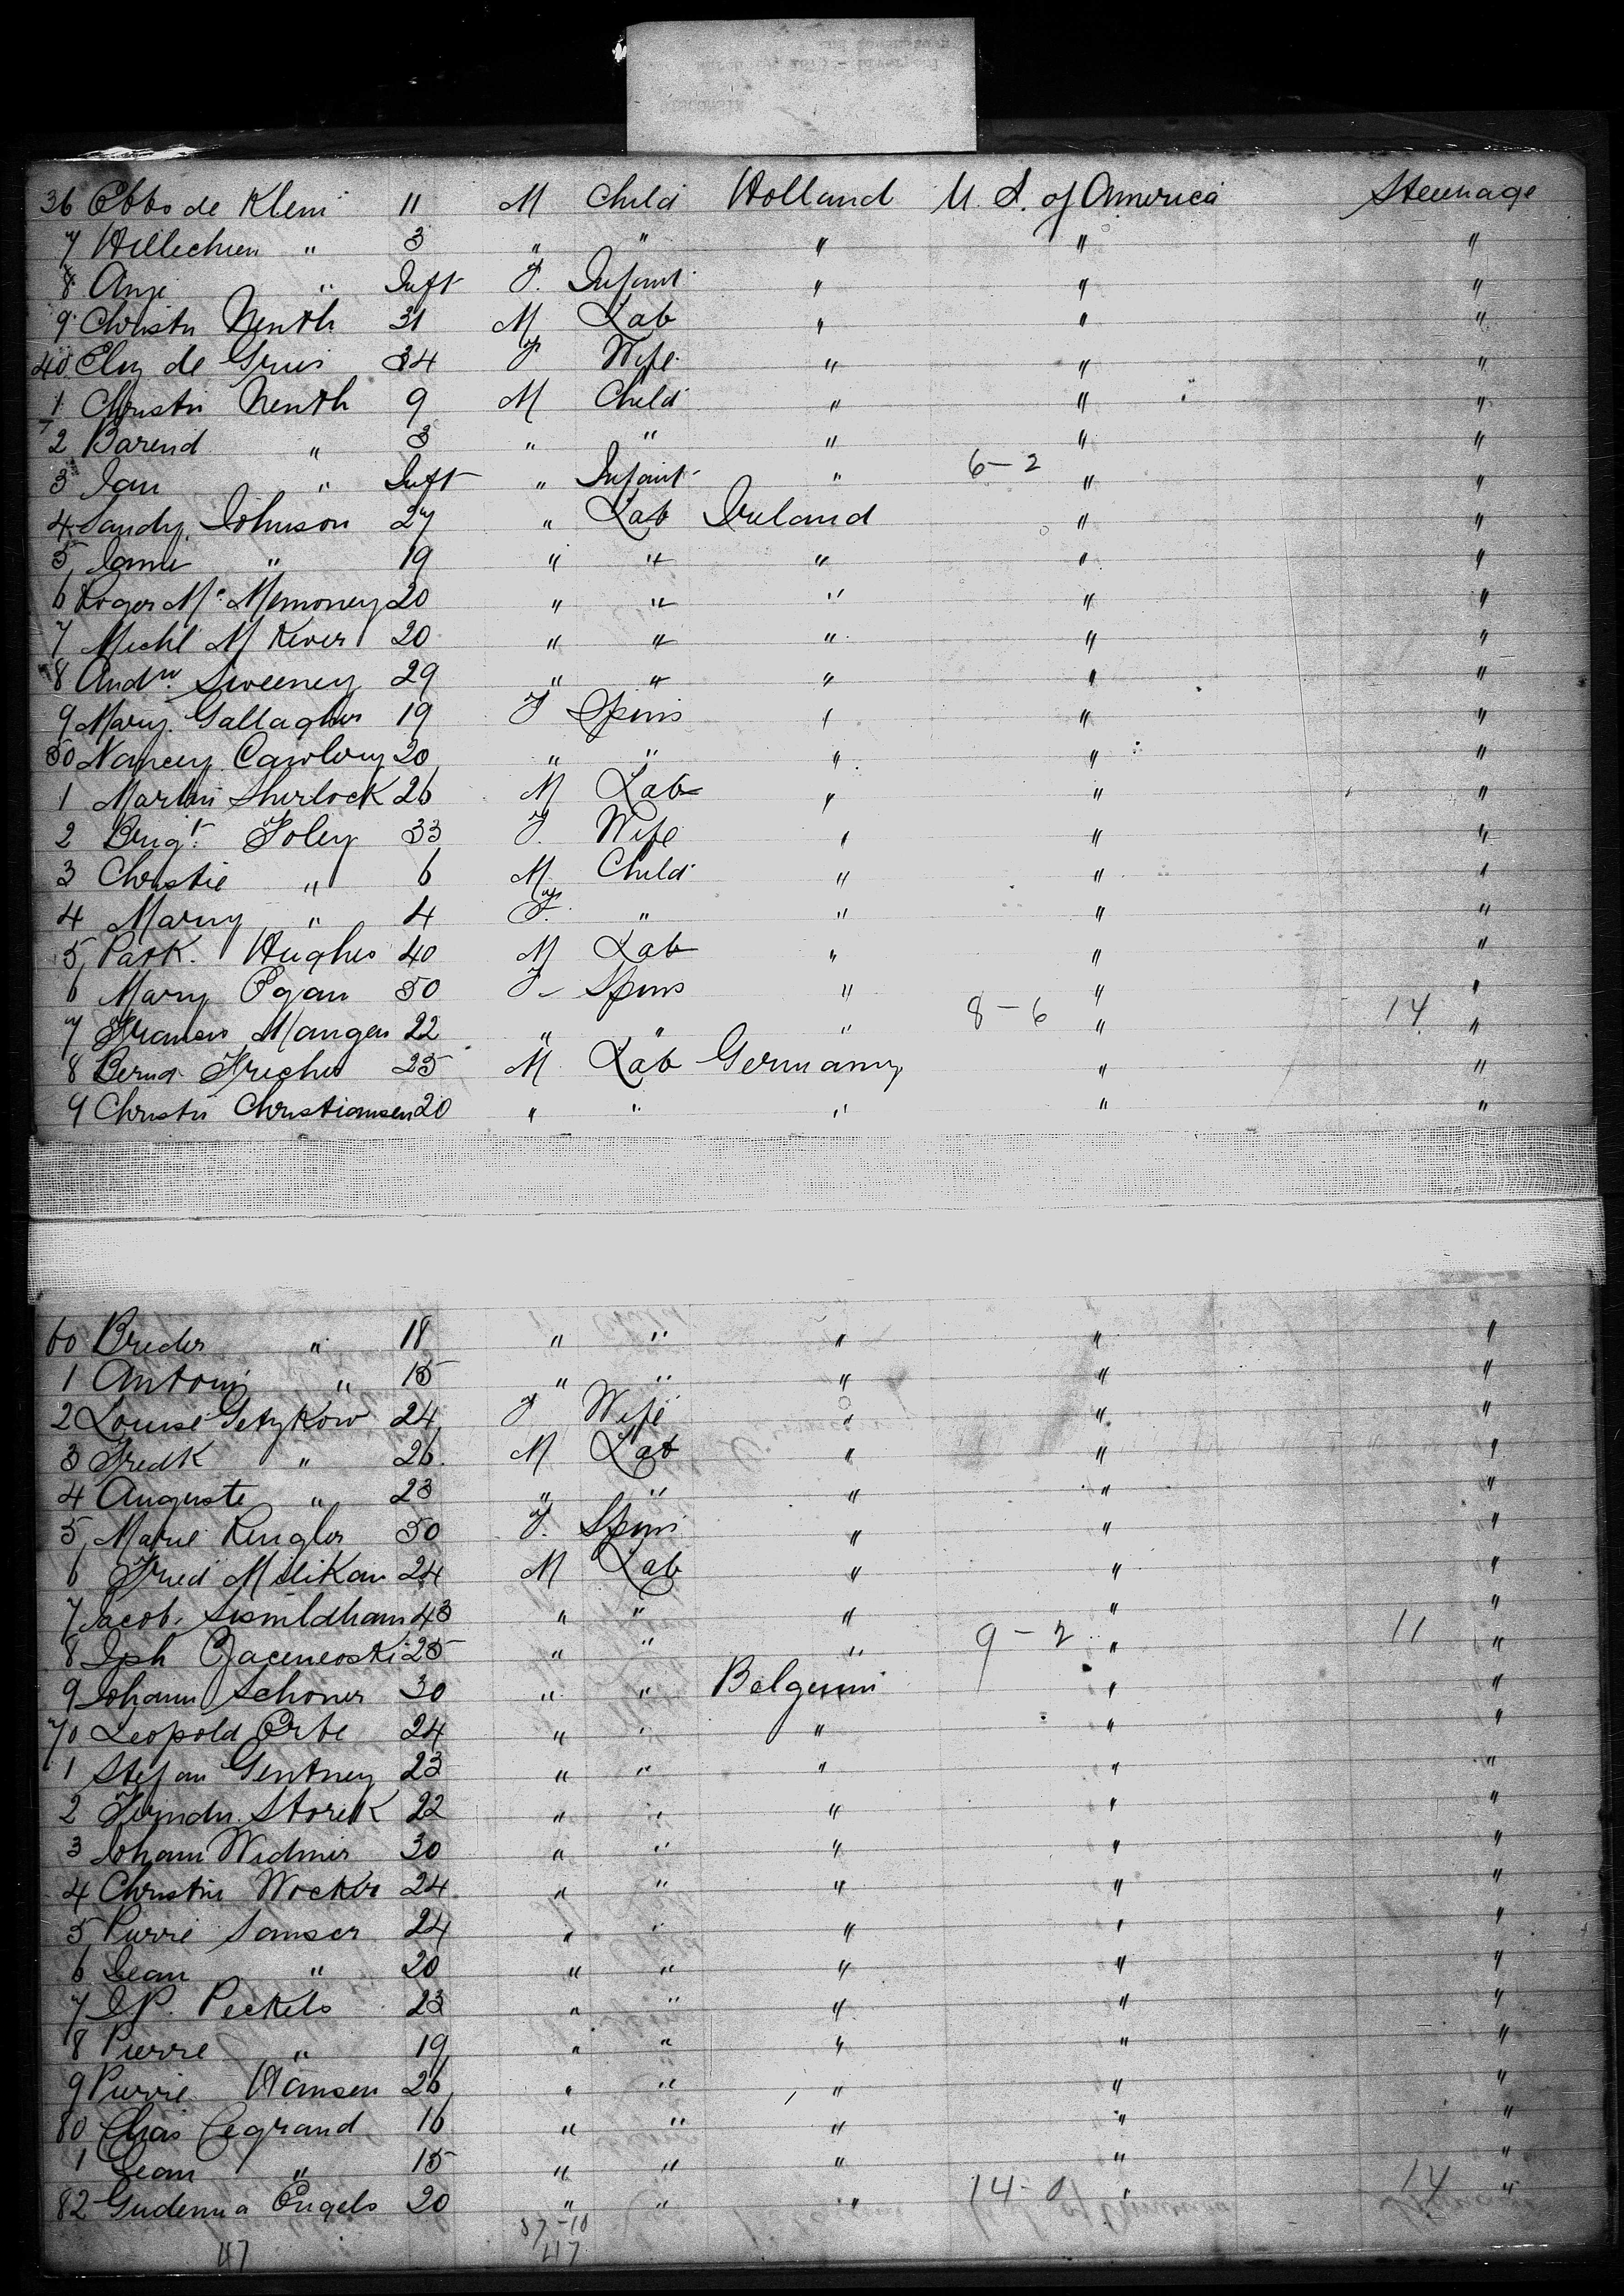 36 Ebbo de Klein 11 M Child Holland U. S. of America Steerage
7 Hillechien " 3 " " " " "
8 Anje " Inft F. Infant " " "
9 Christn Nenth 31 M Lab " " "
40 Elnz de Gruis 34 F Wife " " "
1 Christn Nenth 9 M Child " " "
2 Barend " 3 " " " " "
3 Jan " Inft " Infant " 6-2 " "
4 Sandy Johnson 27 " Lab Ireland " "
5 Jame " 19 " " " " "
6 Roger Mc Memoney 20 " " " " "
7 Michl M Kever 20 " " " " "
8 Andw. Sweeney 29 " " " " "
9 Mary Gallagher 19 F Spins " " "
50 Nancy Cawley 20 " " " " "
1 Martin Sherlock 26 M Lab " " "
2 Brigt. Foley 33 F. Wife " " "
3 Christie " 6 M Child " " "
4 Mary " 4 F. " " " "
5 Patk. Hughes 40 M Lab " " "
6 Mary Egan 50 F Spins " " "
7 Frances Mangan 22 " " " 8-6 " 14 "
8 Bernd Friches 25 M Lab Germany " "
9 Christn Christiansen 20 " " " " "
60 Breder " 18 " " " " "
1 Antoni " 15 " " " " "
2 Louise Getzkow 24 F Wife " " "
3 Fredk " 26 M Lab " " "
4 Auguste " 23 " " " " "
5 Marie Rengler 50 F. Spins " " "
6 Fred Milikan 24 M Lab " " "
7 Jacob 43 " " " " "
8 Jph 25 " " " 9-2 " 11 "
9 Johann Schoner 30 " " Belgium " "
70 Leopold Erbe 24 " " " " "
1 Stefan Gentney 23 " " " " "
2 Ferndn. Storek 22 " " " " "
3 Johann Widmer 30 " " " " "
4 Christin Wocker 24 " " " " "
5 Pierre Samser 24 " " " " "
6 Jean " 20 " " " " "
7 J P. Peckels 23 " " " " "
8 Pierre " 19 " " " " "
9 Pierre Hansen 26 " " " " "
80 Chas Legrand 16 " " " " "
1 Jean " 15 " " " " "
82 Gudenna Engels 20 " " " 14-0 " 14 "
37-10
47 47